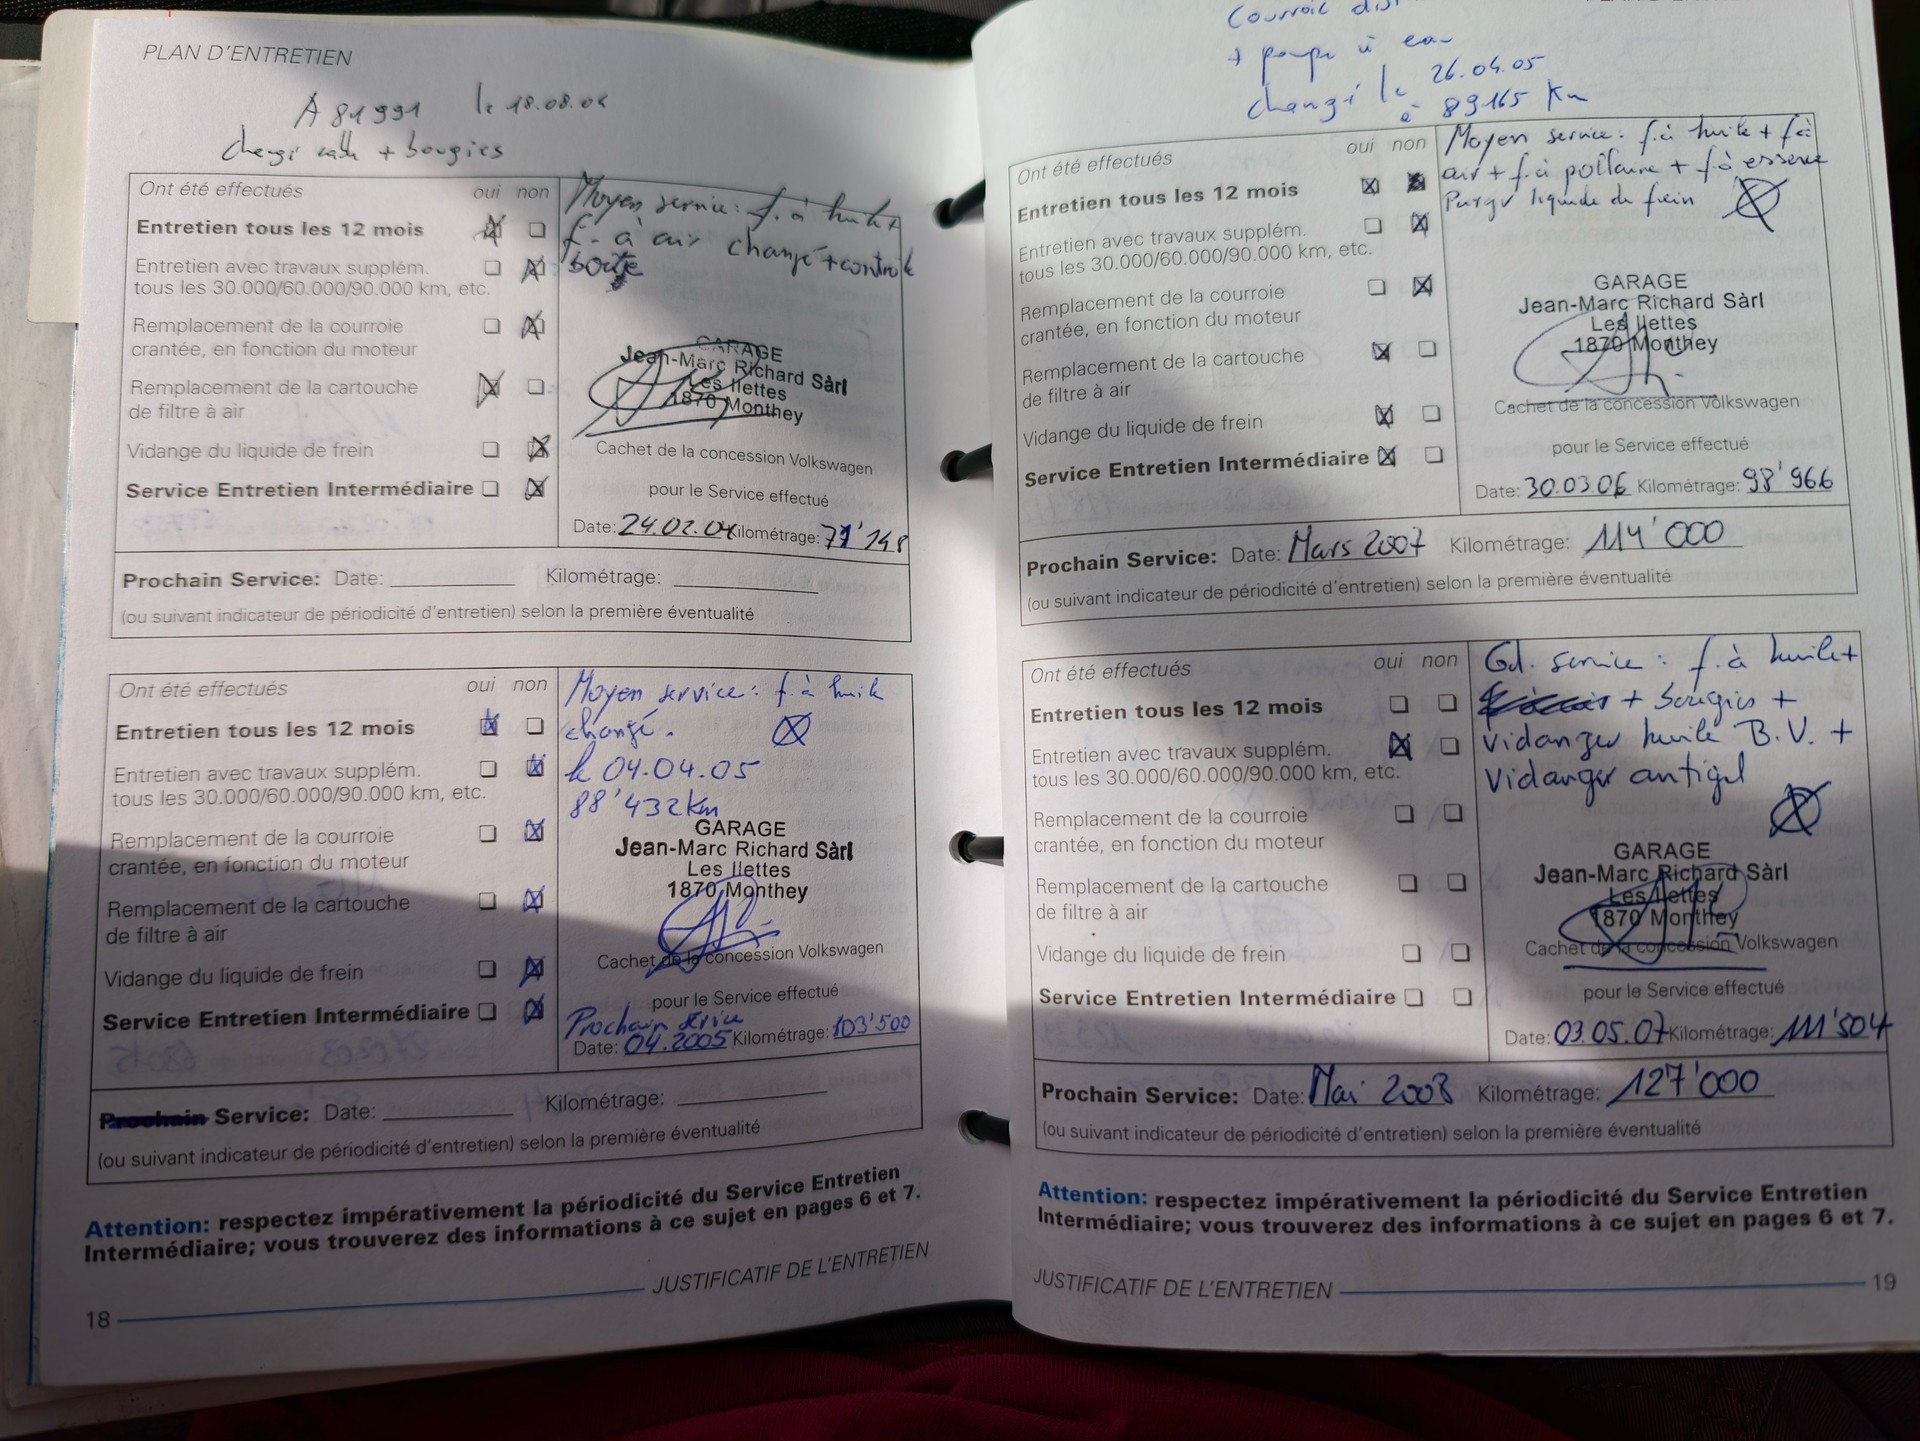 PLAN D'ENTRETIEN
A 81991 le 18.08.04
+ bougies
Ont été effectués oui non
Entretien tous les 12 mois
Entretien avec travaux supplém.
tous les 30.000/60.000/90.000 km, etc.
Remplacement de la courroie
crantée, en fonction du moteur
Remplacement de la cartouche
de filtre à air
Vidange du liquide de frein
Service Entretien Intermédiaire
Moyen service: f. à huile +
f. à air changé + controle
GARAGE
Jean-Marc Richard Sàrl
Les Ilettes
1870 Monthey
Cachet de la concession Volkswagen
pour le Service effectué
Date: 24.02.04 Kilométrage: 71'148
Prochain Service: Date: Kilométrage:
(ou suivant indicateur de périodicité d'entretien) selon la première éventualité
Ont été effectués oui non
Entretien tous les 12 mois
Entretien avec travaux supplém.
tous les 30.000/60.000/90.000 km, etc.
Remplacement de la courroie
crantée, en fonction du moteur
Remplacement de la cartouche
de filtre à air
Vidange du liquide de frein
Service Entretien Intermédiaire
Moyen service: f. à huile
changé.
le 04.04.05
88'432 km
GARAGE
Jean-Marc Richard Sàrl
Les Ilettes
1870 Monthey
Cachet de la concession Volkswagen
pour le Service effectué
Prochain
Date: 04.2005 Kilométrage: 103'500
Prochain Service: Date: Kilométrage:
(ou suivant indicateur de périodicité d'entretien) selon la première éventualité
Attention: respectez impérativement la périodicité du Service Entretien
Intermédiaire; vous trouverez des informations à ce sujet en pages 6 et 7.
JUSTIFICATIF DE L'ENTRETIEN
18
Courroie
+ pompe à eau
changé le 26.04.05
à 89165 Km
Ont été effectués oui non
Entretien tous les 12 mois
Entretien avec travaux supplém.
tous les 30.000/60.000/90.000 km, etc.
Remplacement de la courroie
crantée, en fonction du moteur
Remplacement de la cartouche
de filtre à air
Vidange du liquide de frein
Service Entretien Intermédiaire
Moyen service: f. à huile + f. à
air + f. à pollène + f. à essence
Purger liquide de frein
GARAGE
Jean-Marc Richard Sàrl
Les Ilettes
1870 Monthey
Cachet de la concession Volkswagen
pour le Service effectué
Date: 30.03.06 Kilométrage: 98'966
Prochain Service: Date: Mars 2007 Kilométrage: 114'000
(ou suivant indicateur de périodicité d'entretien) selon la première éventualité
Ont été effectués oui non
Entretien tous les 12 mois
Entretien avec travaux supplém.
tous les 30.000/60.000/90.000 km, etc.
Remplacement de la courroie
crantée, en fonction du moteur
Remplacement de la cartouche
de filtre à air
Vidange du liquide de frein
Service Entretien Intermédiaire
Gd. service: f. à huile +
+ bougies +
Vidanger huile B.V. +
Vidanger antigel
GARAGE
Jean-Marc Richard Sàrl
Les Ilettes
1870 Monthey
Cachet de la concession Volkswagen
pour le Service effectué
Date: 03.05.07 Kilométrage: 111'504
Prochain Service: Date: Mai 2008 Kilométrage: 127'000
(ou suivant indicateur de périodicité d'entretien) selon la première éventualité
Attention: respectez impérativement la périodicité du Service Entretien
Intermédiaire; vous trouverez des informations à ce sujet en pages 6 et 7.
JUSTIFICATIF DE L'ENTRETIEN
19